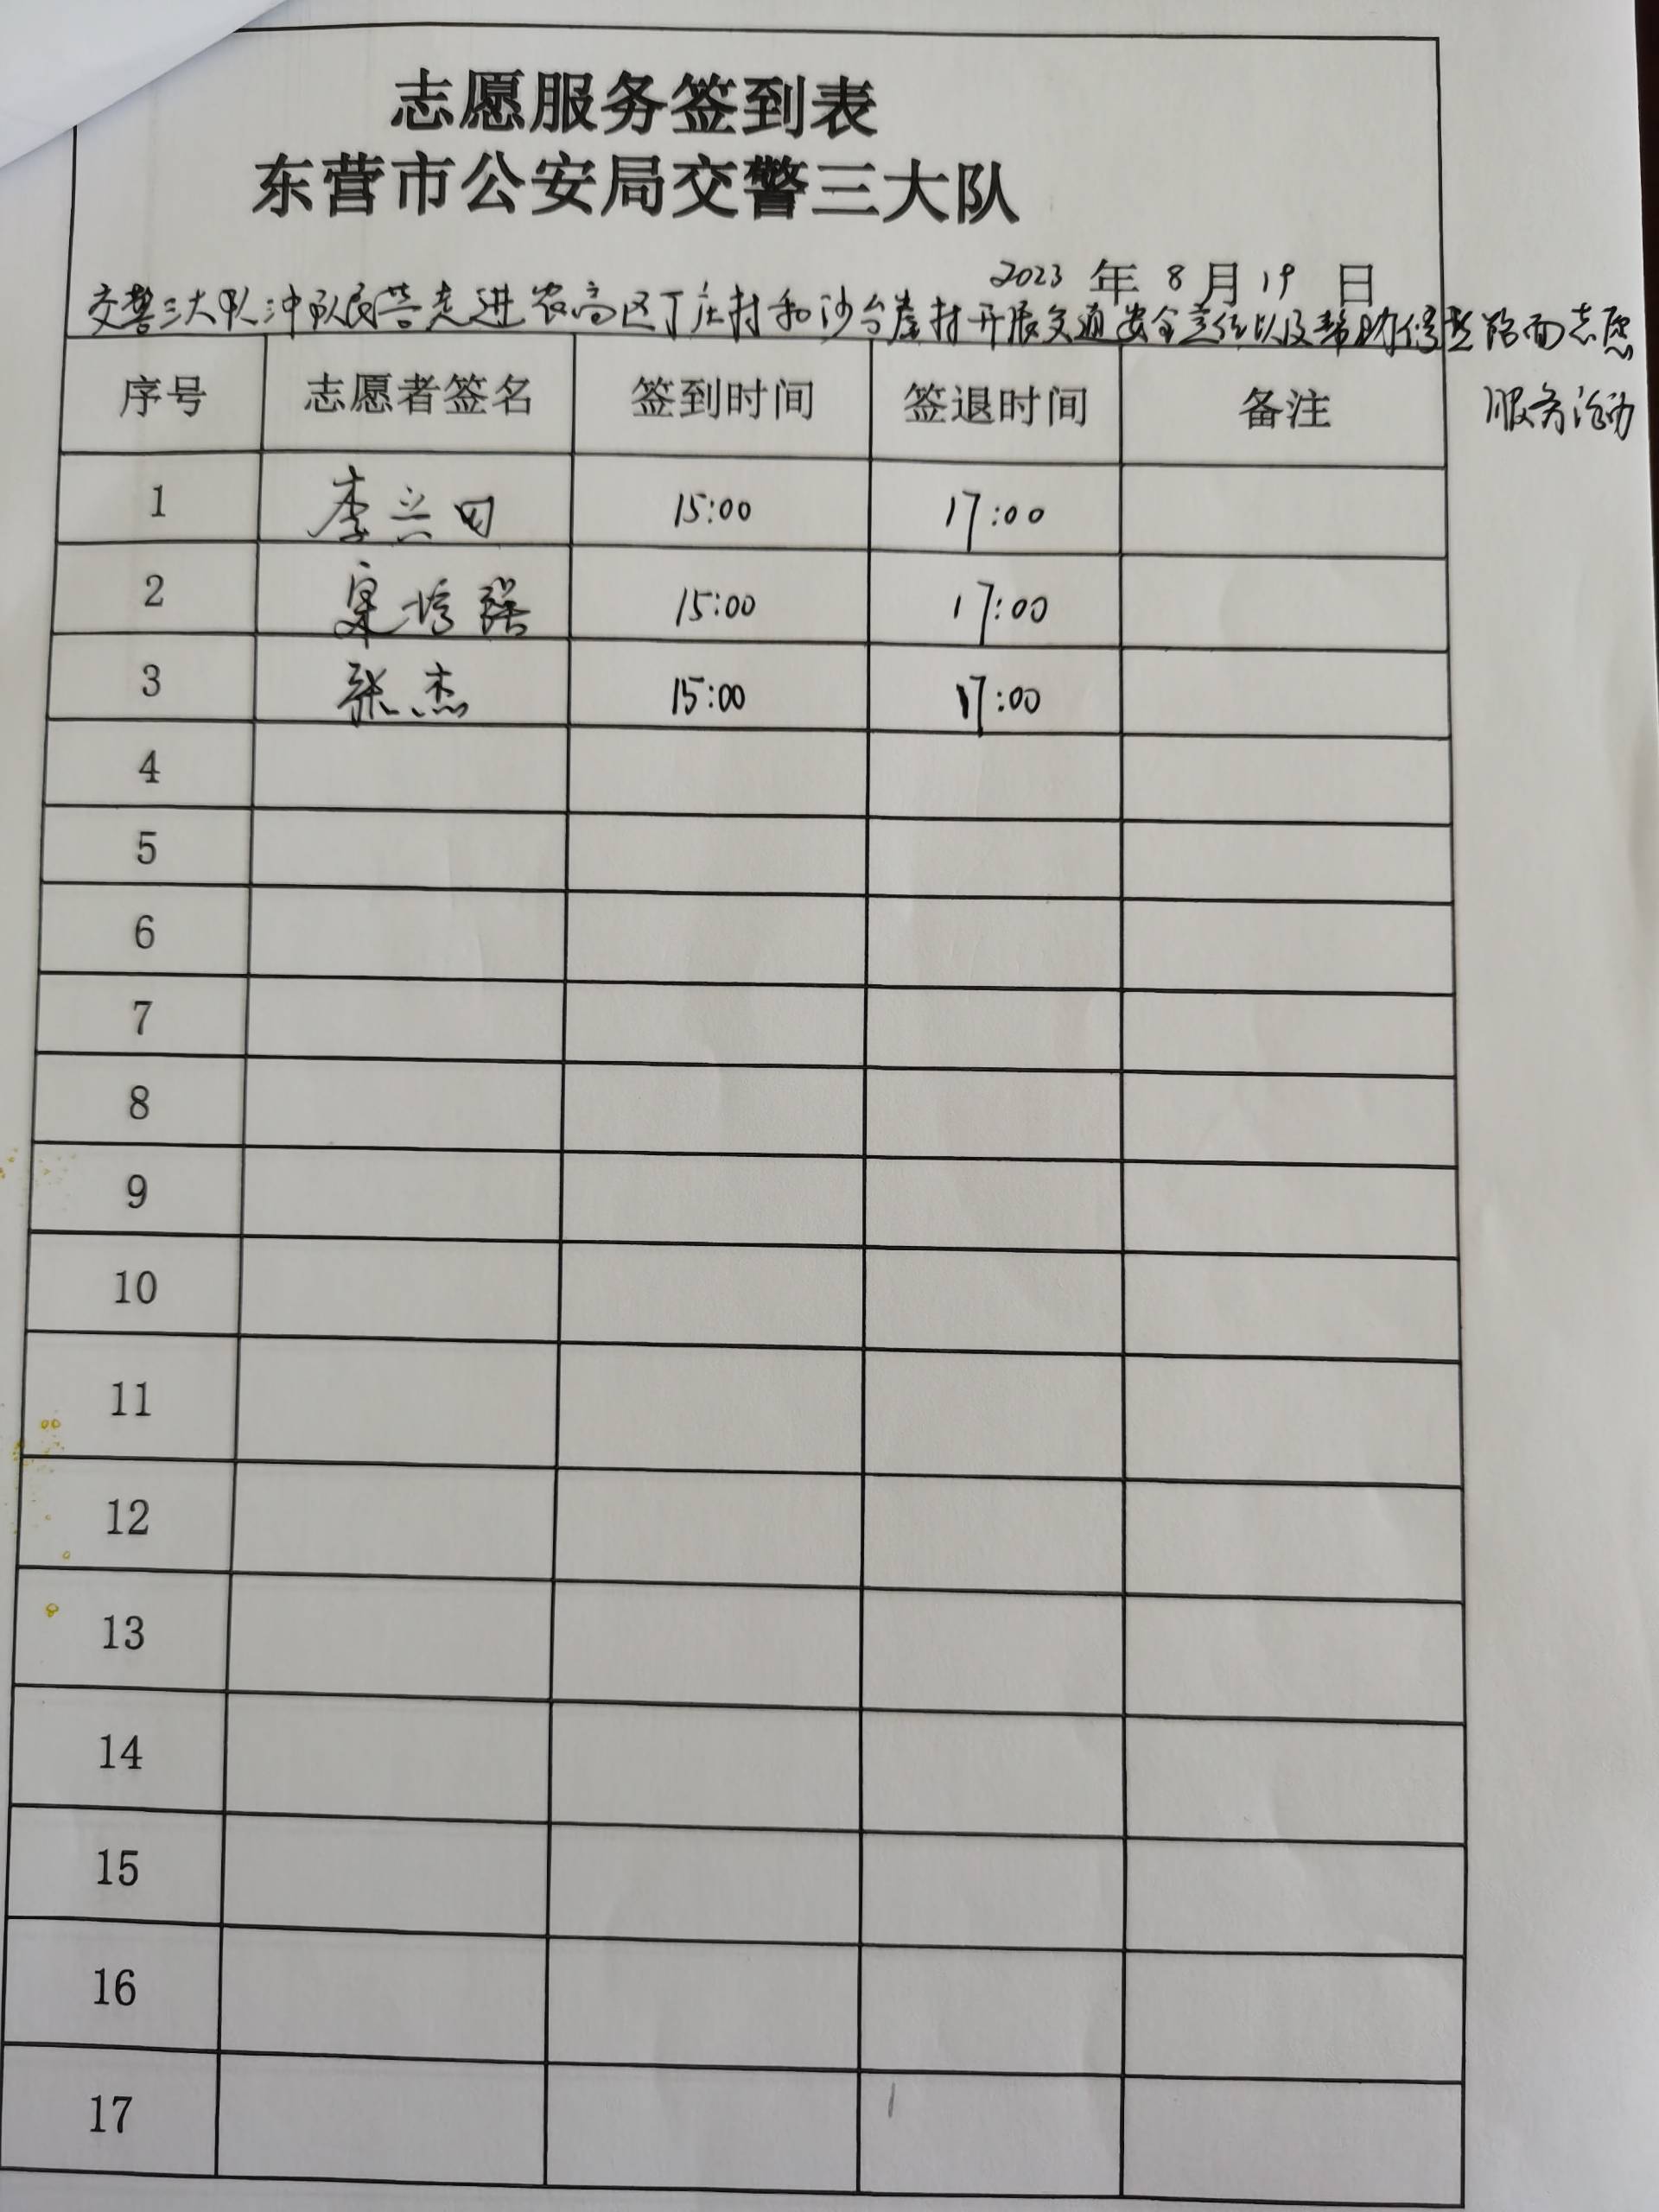 志愿服务签到表
东营市公安局交警三大队
2023 年 8 月 19 日
交警三大队冲队民警走进农高区丁庄村和沙台崖村开展交通安全宣传以及帮助修整路面志愿
服务活动
序号 志愿者签名 签到时间 签退时间 备注
1 李兴田 15:00 17:00
2 15:00 17:00
3 张杰 15:00 17:00
4
5
6
7
8
9
10
11
12
13
14
15
16
17